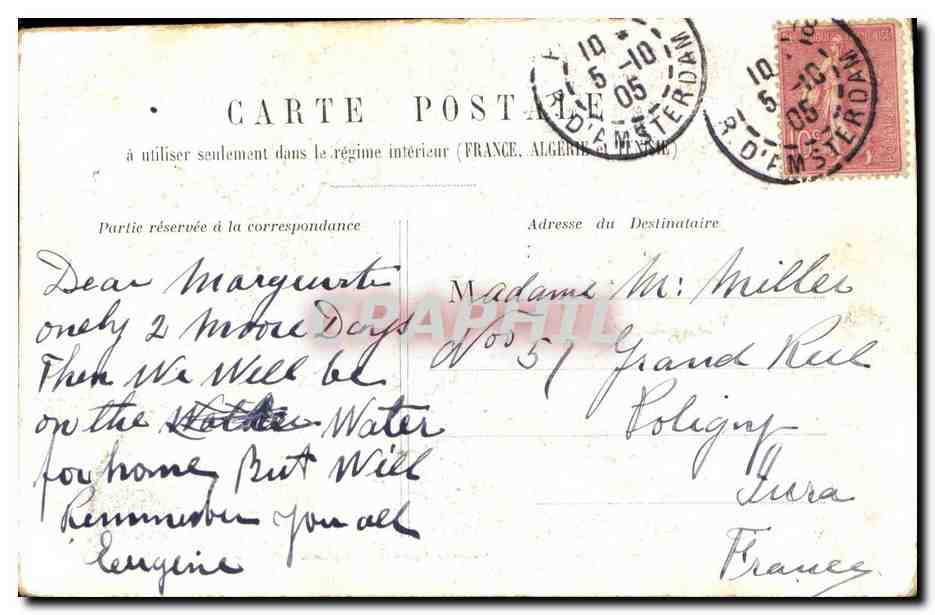 CARTE POSTALE
à utiliser seulement dans le régime intérieur (FRANCE, ALGERIE et TUNISIE)
Partie réservée à la correspondance
Dear Marguerite
onely 2 Moore Days
Then We Will be
on the Water
for home, But Will
Remmember You all
Eugene
Adresse du Destinataire
Madame M: Miller
Nos 57 Grand Rue
Poligny
Jura
France
10
5 -10
05
R. D'AMSTERDAM
10
5 -10
05
R. D'AMSTERDAM
10
CPAPHIL